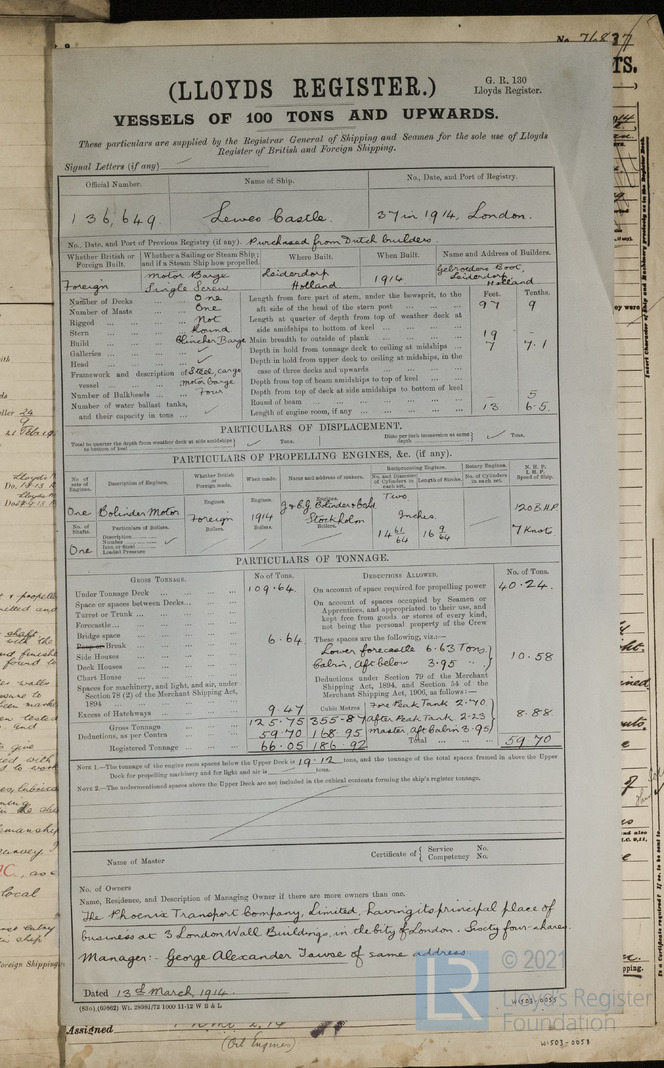 No. 76837
(LLOYDS REGISTER.)
G. R. 130
Lloyds Register.
VESSELS OF 100 TONS AND UPWARDS.
These particulars are supplied by the Registrar General of Shipping and Seamen for the sole use of Lloyds
Register of British and Foreign Shipping.
Signal Letters (if any)
Official Number. Name of Ship. No., Date, and Port of Registry.
136,649. Lewes Castle. 37 in 1914, London.
No., Date, and Port of Previous Registry (if any). Purchased from Dutch builders.
Whether British or Foreign Built. Whether a Sailing or Steam Ship; and if a Steam Ship how propelled. Where Built. When Built. Name and Address of Builders.
Foreign Motor Barge Single Screw Leiderdorp Holland 1914 Gebroeders Boot, Leiderdorp, Holland
Feet. Tenths.
Number of Decks One Length from fore part of stem, under the bowsprit, to the
Number of Masts One aft side of the head of the stern post 97 9
Rigged Not Length at quarter of depth from top of weather deck at
Stern Round side amidships to bottom of keel
Build Clincher Barge Main breadth to outside of plank 19 -
Galleries Depth in hold from tonnage deck to ceiling at midships 7 7.1
Head Depth in hold from upper deck to ceiling at midships, in the
Framework and description of vessel Steel, cargo motor barge case of three decks and upwards
Depth from top of beam amidships to top of keel
Number of Bulkheads Four Depth from top of deck at side amidships to bottom of keel
Number of water ballast tanks, Round of beam - 5
and their capacity in tons Length of engine room, if any 13 6.5.
PARTICULARS OF DISPLACEMENT.
Total to quarter the depth from weather deck at side amidships to bottom of keel Tons. Ditto per inch immersion at same depth Tons.
PARTICULARS OF PROPELLING ENGINES, &c. (if any).
No. of sets of Engines. Description of Engines. Whether British or Foreign made. When made. Name and address of makers. Reciprocating Engines. Rotary Engines. N. H. P. I. H. P. Speed of Ship.
No. and Diameter of Cylinders in each set. Length of Stroke. No. of Cylinders in each set.
Engines. Engines. Engines.
One Bolinder Motor Foreign 1914 Stockholm Two 120 B.H.P.
No. of Shafts. Particulars of Boilers. Boilers. Boilers. Boilers. Inches.
Description
Number
Iron or Steel
Loaded Pressure
One 14 61/64 16 9/64 7 Knot
PARTICULARS OF TONNAGE.
GROSS TONNAGE. No of Tons. DEDUCTIONS ALLOWED. No. of Tons.
Under Tonnage Deck 109.64. On account of space required for propelling power 40.24.
Space or spaces between Decks On account of spaces occupied by Seamen or
Turret or Trunk Apprentices, and appropriated to their use, and
Forecastle kept free from goods or stores of every kind,
not being the personal property of the Crew
Bridge space 6.64. These spaces are the following, viz.:—
Poop or Break Lower forecastle 6.63 Tons
Side Houses Cabin, Aft below 3.95 " 10.58
Deck Houses
Chart House Deductions under Section 79 of the Merchant
Spaces for machinery, and light, and air, under Shipping Act, 1894, and Section 54 of the
Section 78 (2) of the Merchant Shipping Act, Merchant Shipping Act, 1906, as follows:—
1894
Excess of Hatchways 9.47 Cubic Metres Fore Peak Tank 2.70
Gross Tonnage 125.75 355.87 after Peak Tank 2.23 8.88
Deductions, as per Contra 59.70 168.95 Master, Aft Cabin 3.95
Registered Tonnage 66.05 186.92 Total 59.70
NOTE 1.—The tonnage of the engine room spaces below the Upper Deck is 19.12 tons, and the tonnage of the total spaces framed in above the Upper
Deck for propelling machinery and for light and air is tons.
NOTE 2.—The undermentioned spaces above the Upper Deck are not included in the cubical contents forming the ship's register tonnage.
Name of Master Certificate of { Service No. Competency No.
No. of Owners
Name, Residence, and Description of Managing Owner if there are more owners than one.
The Phoenix Transport Company, Limited, having its principal place of
business at 3 London Wall Buildings, in the City of London. Sixty four-shares.
Manager:- George Alexander Towse of same address.
Dated 13th March, 1914.
© 2021
LR
Lloyd's Register
Foundation
W1503-0055
Assigned
(Oil Engines)
W1503-0058